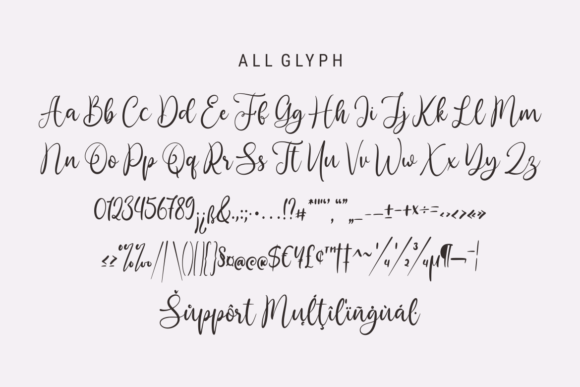 ALL GLYPH
Aa Bb Cc Dd Ee Ff Gg Hh Ii Jj Kk Ll Mm
Nn Oo Pp Qq Rr Ss Tt Uu Vv Ww Xx Yy Zz
0123456789¡¿ß&.,:;·•…!?#*"'‘’“”‚„_-–—±−+×÷=‹›«»
≤≥°%‰/|\()[]{}§¤@@@$€¥£¢™†‡^~¼½¾µ¶¬¦
Šüppôrt Muļťįlïñġùáĺ